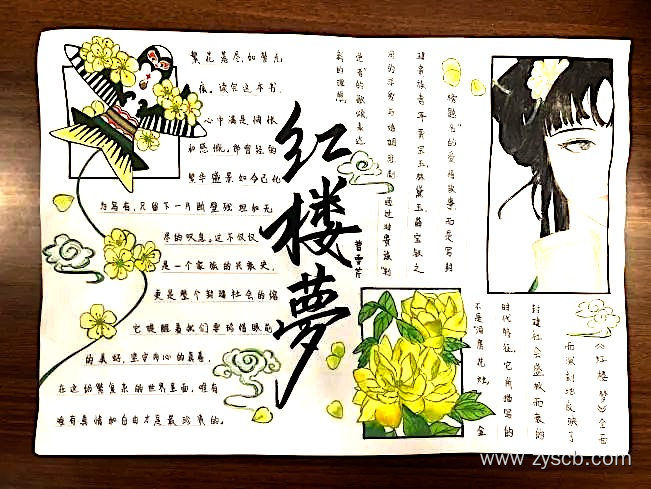 红楼梦
曹雪芹
繁花落尽,如梦无
痕。读完这本书,
心中满是惆怅
和感慨。那曾经的
繁华盛景,如今已化
为乌有,只留下一片断壁残垣和无
尽的叹息。这不仅仅
是一个家族的兴衰史,
更是整个封建社会的缩
它提醒着我们要珍惜眼前
的美好,坚守内心的真善,
在这纷繁复杂的世界里面,唯有
唯有真情和自由才是最珍贵的。
《红楼梦》全面
而深刻地反映了
封建社会盛极而衰的
时代特征。它所描写的
不是“洞房花烛,金
榜题名”的爱情故事,而是写封
建贵族青年贾宝玉、林黛玉、薛宝钗之
间的恋爱与婚姻悲剧。通过对贵族
新的理想。
www.zyscb.com